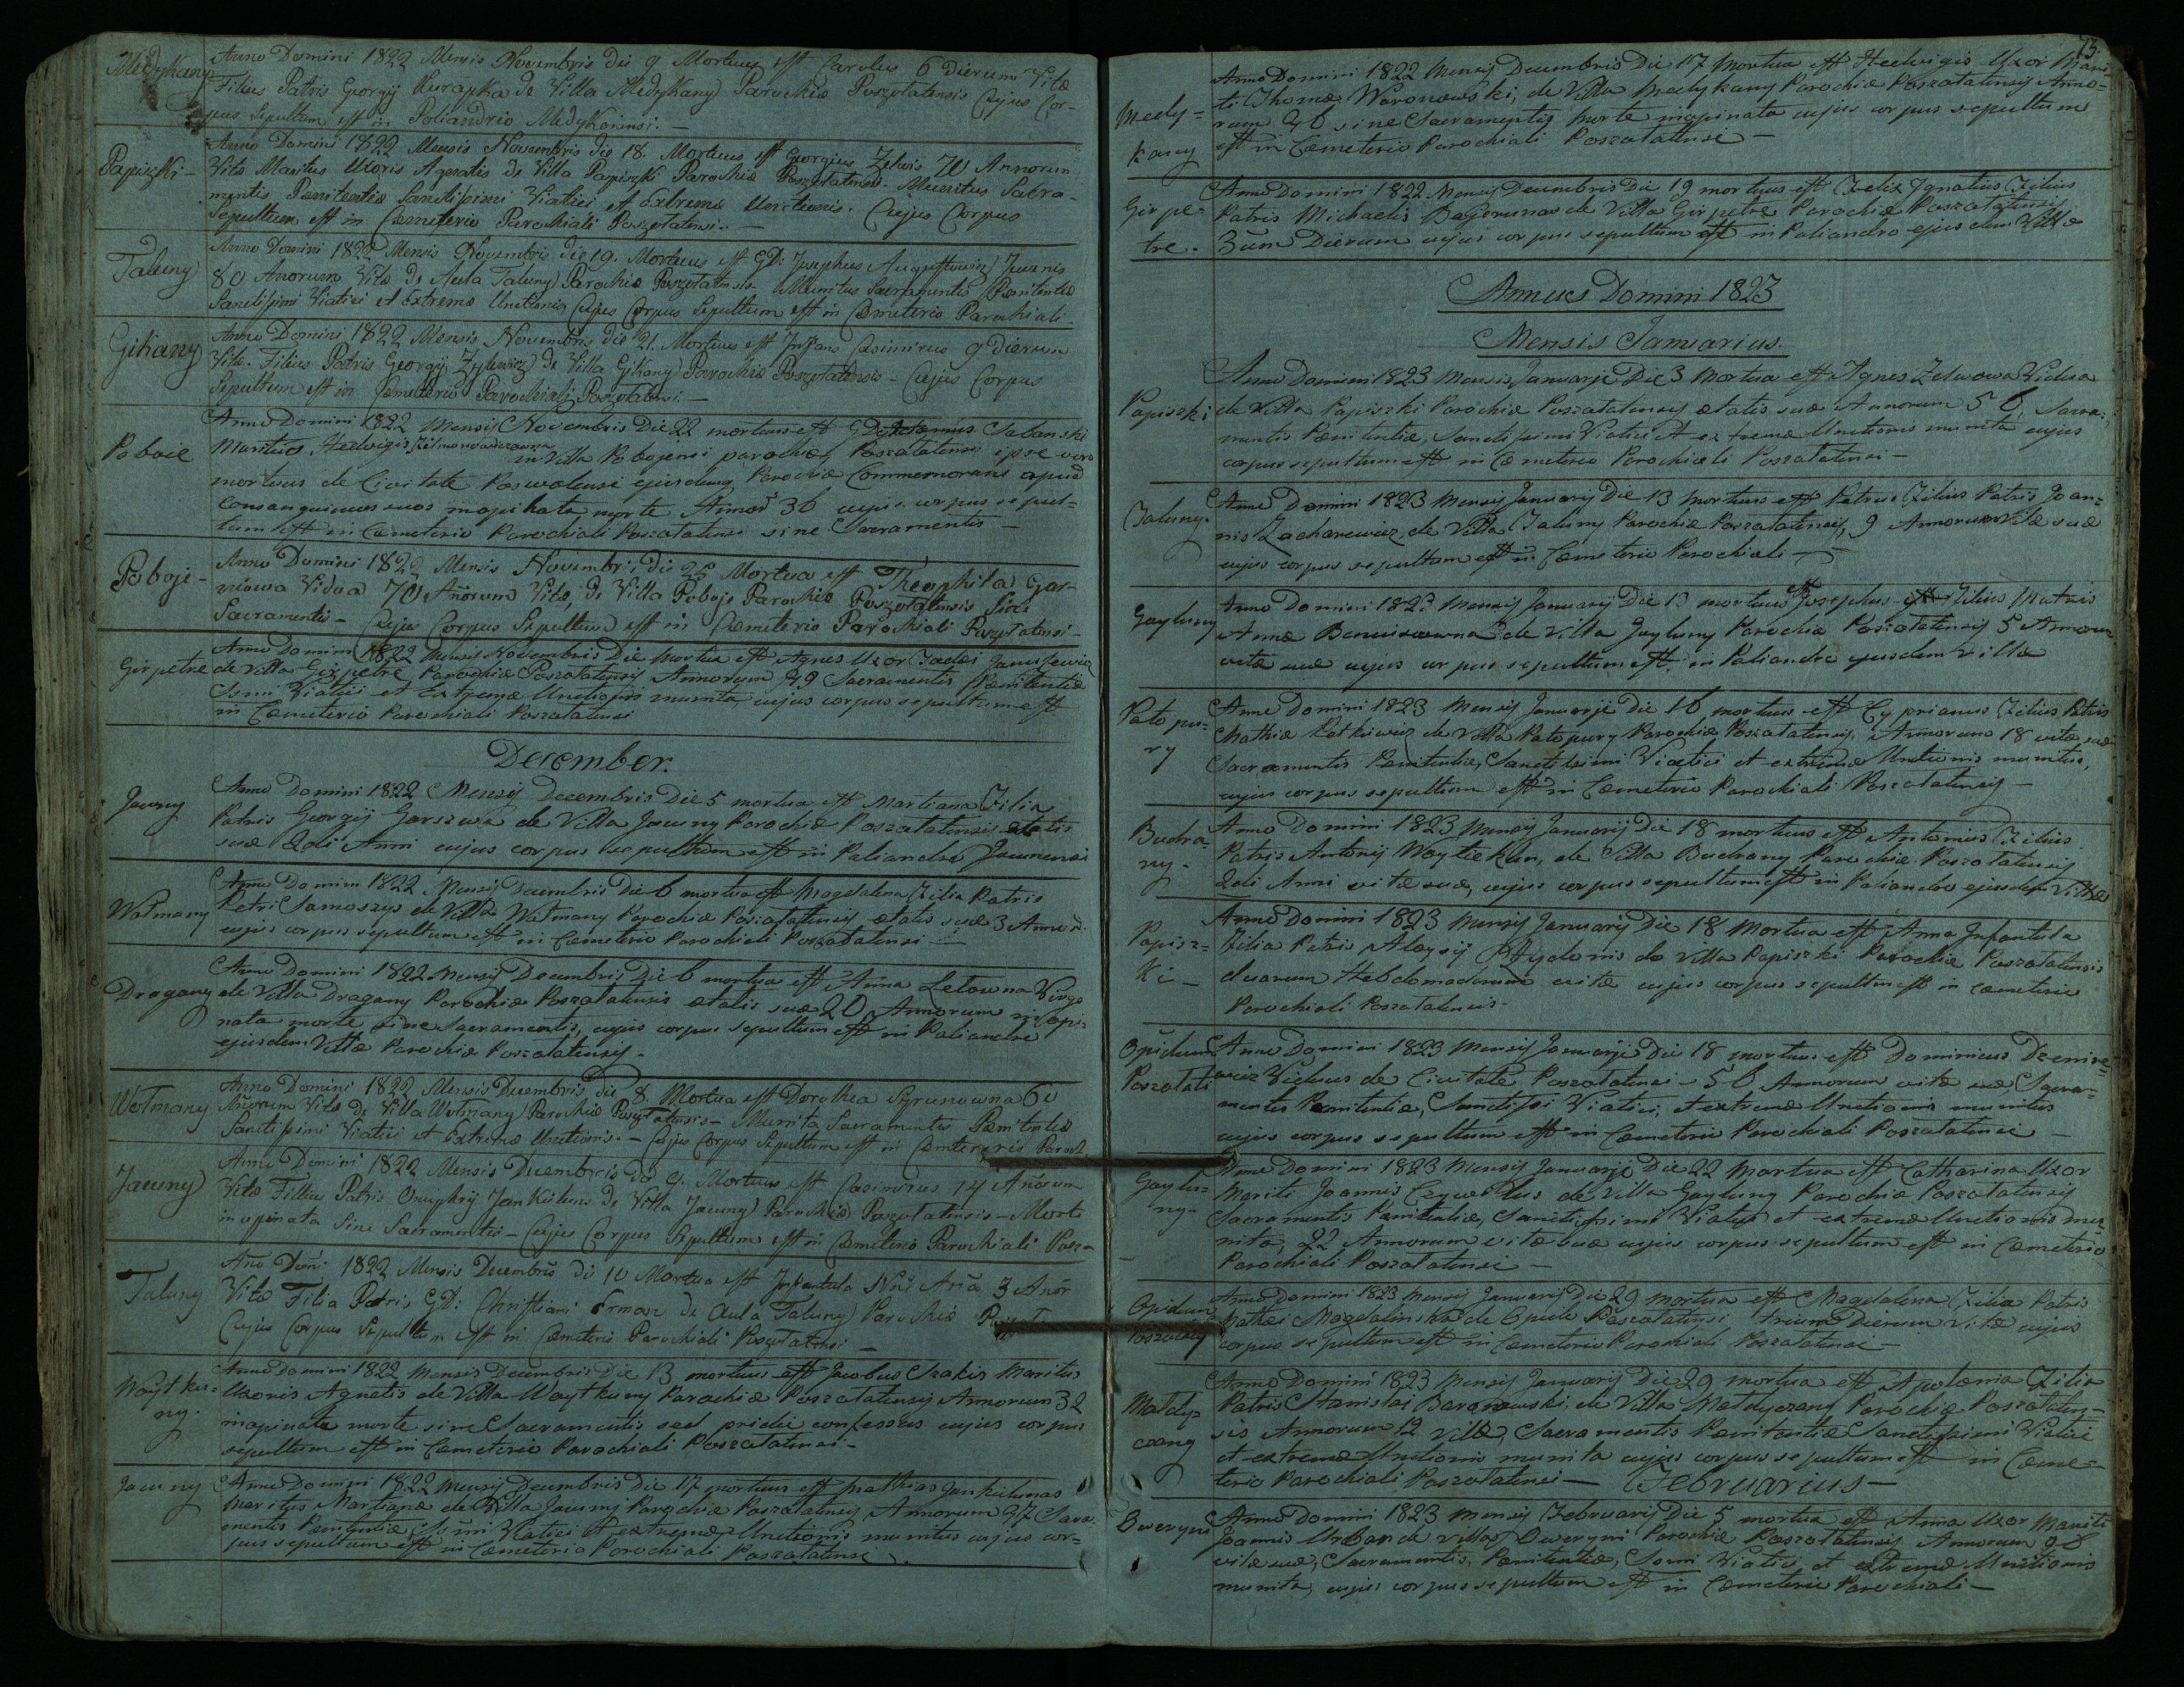 Medykany
Anno Domini 1822 Mensis Novembris die 9 Mortuus est Carolus 6 Dierum Vitæ
Filius Patris Georgij Kurapka de Villa Medykany Parochiæ Poszołatensis Cujus Cor-
pus Sepultum est in Poliandrio Medykanensi. —
Papiszki —
Anno Domini 1822 Mensis Novembris die 18. Mortuus est Georgius Zelwis 70 Annorum
Vitæ Maritus Uxoris Agnetis de Villa Papiszki Parochiæ Poszołatensis. Munitus Sacra-
mentis Pænitentiæ Sanctissimi Viatici et Extremæ Unctionis. Cujus Corpus
Sepultum est in Cæmeterio Parochiali Poszołatensi. —
Taluny
Anno Domini 1822 Mensis Novembris die 19. Mortuus est GD: Josephus Augustowicz Juvenis
80 Anorum Vitæ de Aula Taluny Parochiæ Poszołatensis Munitus Sacramentis Pænitentiæ
Sanctissimi Viatici et Extremæ Unctionis Cujus Corpus Sepultum est in Cæmeterio Parochiali
Gikany
Anno Domini 1822 Mensis Novembris die 21. Mortuus est Infans Casimirus 9 dierum
Vitæ. Filius Patris Georgij Zylewicz de Villa Gikany Parochiæ Poszołatensis — Cujus Corpus
Sepultum est in Cæmeterio Parochiali Poszołatensi. —
Poboie
Anno Domini 1822 Mensis Novembris Die 22 mortuus est GD Sabanski
Maritus Hedvigis in Villa Pobojensi parochiæ Poszołatensis ipse vero
mortuus de Civitate Poswolensi ejusdem Parochiæ Commemorans apud
consanguineos suos inopinata morte Annor 36 cujus corpus sepul-
tum est in Cæmeterio Parochiali Poszołatensi sine Sacramentis —
Poboje —
Anno Domini 1822 Mensis Novembris die 25 Mortua est Theophila Gas-
niowa Vidua 70 Añorum Vitæ, de Villa Poboje Parochiæ Poszołatensis Sine
Sacramentis — Cujus Corpus Sepultum est in Cæmeterio Parochiali Poszołatensi —
Girpetre
Anno Domini 1822 Mensis Novembris Die mortua est Agnes Uxor Tadei Januszewicz
de Villa Girpetre Parochiæ Poszołatensis Annorum 49 Sacramentis Pænitentiæ
Ssmi Viatici et Extremæ Unctionis munita cujus corpus sepultum est
in Cæmeterio Parochiali Poszołatensi
December.
Jauny
Anno Domini 1822 Mensis Decembris Die 5 mortua est Martiana Filia
Patris Georgij Garszwa de Villa Jauny Parochiæ Poszołatensis ætatis
suæ 2di Anni cujus corpus sepultum est in Paliandro Jaunensi
Wołmany
Anno Domini 1822 Mensis Decembris Die 6 mortua est Magdalena Filia Patris
Petri Samoszys de Villa Wołmany Parochiæ Poszołatensis ætatis suæ 3 Annor
cujus corpus sepultum est in Cæmeterio Parochiali Poszołatensi —
Dragany
Anno Domini 1822 Mensis Decembris Die 6 mortua est Anna Letowna Virgo
de Villa Dragany Parochiæ Poszołatensis ætatis suæ 20 Annorum inopi-
nata morte sine Sacramentis, cujus corpus sepultum est in Paliandro
ejusdem Villæ Parochiæ Poszołatensis.
Wołmany
Anno Domini 1822 Mensis Decembris die 8. Mortua est Dorothea Syrunowna 60
Añorum Vitæ de Villa Wołmany Parochiæ Poszołatensis — Munita Sacramentis Pænitentiæ
Sanctissimi Viatici et Extremæ Unctionis. — Cujus Corpus Sepultum est in Cæmeterio Paroch
Jauny
Anno Domini 1822 Mensis Decembris die 9. Mortuus est Casimirus 14 Añorum
Vitæ Filius Patris Onuphrij Jankielunas de Villa Jauny Parochiæ Poszołatensis — Morte
inopinata Sine Sacramentis — Cujus Corpus Sepultum est in Cæmeterio Parochiali Posza
Taluny
Año Dni 1822 Mensis Decembris die 10 Mortua est Infantula Nni Aña 3 Añor
Vitæ Filia Patris GD: Christiani Ermasz de Aula Taluny Parochiæ Poszoł
Cujus Corpus Sepultum est in Cæmeterio Parochiali Poszołatensi —
Woytku-
ny.
Anno Domini 1822 Mensis Decembris Die 13 mortuus est Jacobus Czakis Maritus
Uxoris Agnetis de Villa Woytkuny Parochiæ Poszołatensis Annorum 32
inopinata morte sine Sacramentis sed pridie confessus cujus corpus
sepultum est in Cæmeterio Parochiali Poszołatensi. —
Jauny
Anno Domini 1822 Mensis Decembris Die 17 mortuus est Mathias Jankielunas
maritus Martianæ de Villa Jauny Parochiæ Poszołatensis Annorum 37 Sacra
mentis Pænitentiæ, Ssimi Viatici et extremæ Unctionis munitus cujus cor-
pus sepultum est in Cæmeterio Parochiali Poszołatensi.
73.
Medy-
kany
Anno Domini 1822 Mensis Decembris Die 17 Mortua est Hedvigis Uxor Mari-
ti Thomæ Woronowski, de Villa Medykany Parochiæ Poszołatensis Anno-
rum 46 sine Sacramentis morte inopinata cujus corpus sepultum
est in Cæmeterio Parochiali Poszołatensi —
Girpe-
tre.
Anno Domini 1822 Mensis Decembris Die 19 mortuus est Felix Ignatius Filius
Patris Michaelis Bagorunas de Villa Girpetre Parochiæ Poszołatensis
3um Dierum cujus corpus sepultum est in Paliandro ejusdem Villæ
Annus Domini 1823
Mensis Januarius.
Papiszki
Anno Domini 1823 Mensis Januarji Die 3 mortua est Agnes Zelwowa Vidua
de Villa Papiszki Parochiæ Poszołatensis ætatis suæ Annorum 56, Sacra-
mentis Pænitentiæ, Sanctissimi Viatici et extremæ Unctionis munita cujus
corpus sepultum est in Cæmeterio Parochiali Poszołatensi —
Taluny.
Anno Domini 1823 Mensis Januarij Die 13 mortuus est Petrus Filius Patris Joan-
nis Zacharewicz, de Villa Taluny Parochiæ Poszołatensis, 9 Annorum Vitæ suæ
cujus corpus sepultum est in Cæmeterio Parochiali —
Gayluny
Anno Domini 1823 Mensis Januarij Die 13 mortuus est Josephus Filius Matris
Annæ de Villa Gayluny Parochiæ Poszołatensis 5 Annorum
vitæ suæ cujus corpus sepultum est in Paliandro ejusdem villæ
Patopu-
ry
Anno Domini 1823 Mensis Januarji Die 16 mortuus est Cyprianus Filius Patris
Mathiæ Rotkiewicz de Villa Patopury Parochiæ Poszołatensis, Annorum 18 vitæ suæ
Sacramentis Pænitentiæ, Sanctissimi Viatici et extremæ Unctionis munitus,
cujus corpus sepultum est in Cæmeterio Parochiali Poszołatensis —
Budra-
ny.
Anno Domini 1823 Mensis Januarij Die 18 mortuus est Antonius Filius
Patris Antonij Woytiekun, de Villa Budrany Parochiæ Poszołatensis
2di Anni vitæ suæ, cujus corpus sepultum est in Paliandro ejusdem Villæ
Papisz-
Ki —
Anno Domini 1823 Mensis Januarij Die 18 Mortua est Anna Infantula
Filia Patris Aloysij Aydonis de Villa Papiszki Parochiæ Poszołatensis
duarum Hebdomadarum vitæ cujus corpus sepultum est in Cæmeterio
Parochiali Poszołatensis.
Opidum
Poszołati
Anno Domini 1823 Mensis Januarji Die 18 mortuus est Dominicus Dzenise-
wicz Viduus de Civitate Poszołatensi — 56 Annorum vitæ suæ, Sacra-
mentis Pænitentiæ, Sanctissi Viatici, et extremæ Unctionis munitus
cujus corpus sepultum est in Cæmeterio Parochiali Poszołatensi —
Gaylu-
ny.
Anno Domini 1823 Mensis Januarji Die 22 Mortua est Catharina Uxor
Mariti Joannis de Villa Gayluny Parochiæ Poszołatensis
Sacramentis Pænitentiæ, Sanctissimi Viatici et extremæ Unctionis mu-
nita, 22 Annorum vitæ suæ cujus corpus sepultum est in Cæmeterio
Parochiali Poszołatensi —
Opidum
Poszołaty
Anno Domini 1823 Mensis Januarij Die 29 mortua est Magdalena Filia Patris
Mathei Magdalinska de Opido Poszołatensi trium Dierum vitæ cujus
corpus sepultum est in Cæmeterio Parochiali Poszołatensi —
Małdy-
czany
Anno Domini 1823 Mensis Januarij Die 29 mortua est Apolonia Filia
Patris Stanislai Baranowski, de Villa Małdyczany Parochiæ Poszołaten-
sis Annorum 12 vitæ, Sacramentis Pænitentiæ Sanctissimi Viatici
et extremæ Unctionis munita cujus corpus sepultum est in Cæme-
terio Parochiali Poszołatensi — Februarius —
Oweryni
Anno Domini 1823 Mensis Februarij Die 5 mortua est Anna Uxor Mariti
Joannis Urban de Villa Oweryni Parochiæ Poszołatensis Annorum 26
vitæ suæ, Sacramentis, Pænitentiæ, Ssmi Viatici et extremæ Unctionis
munita, cujus corpus sepultum est in Cæmeterio Parochiali —